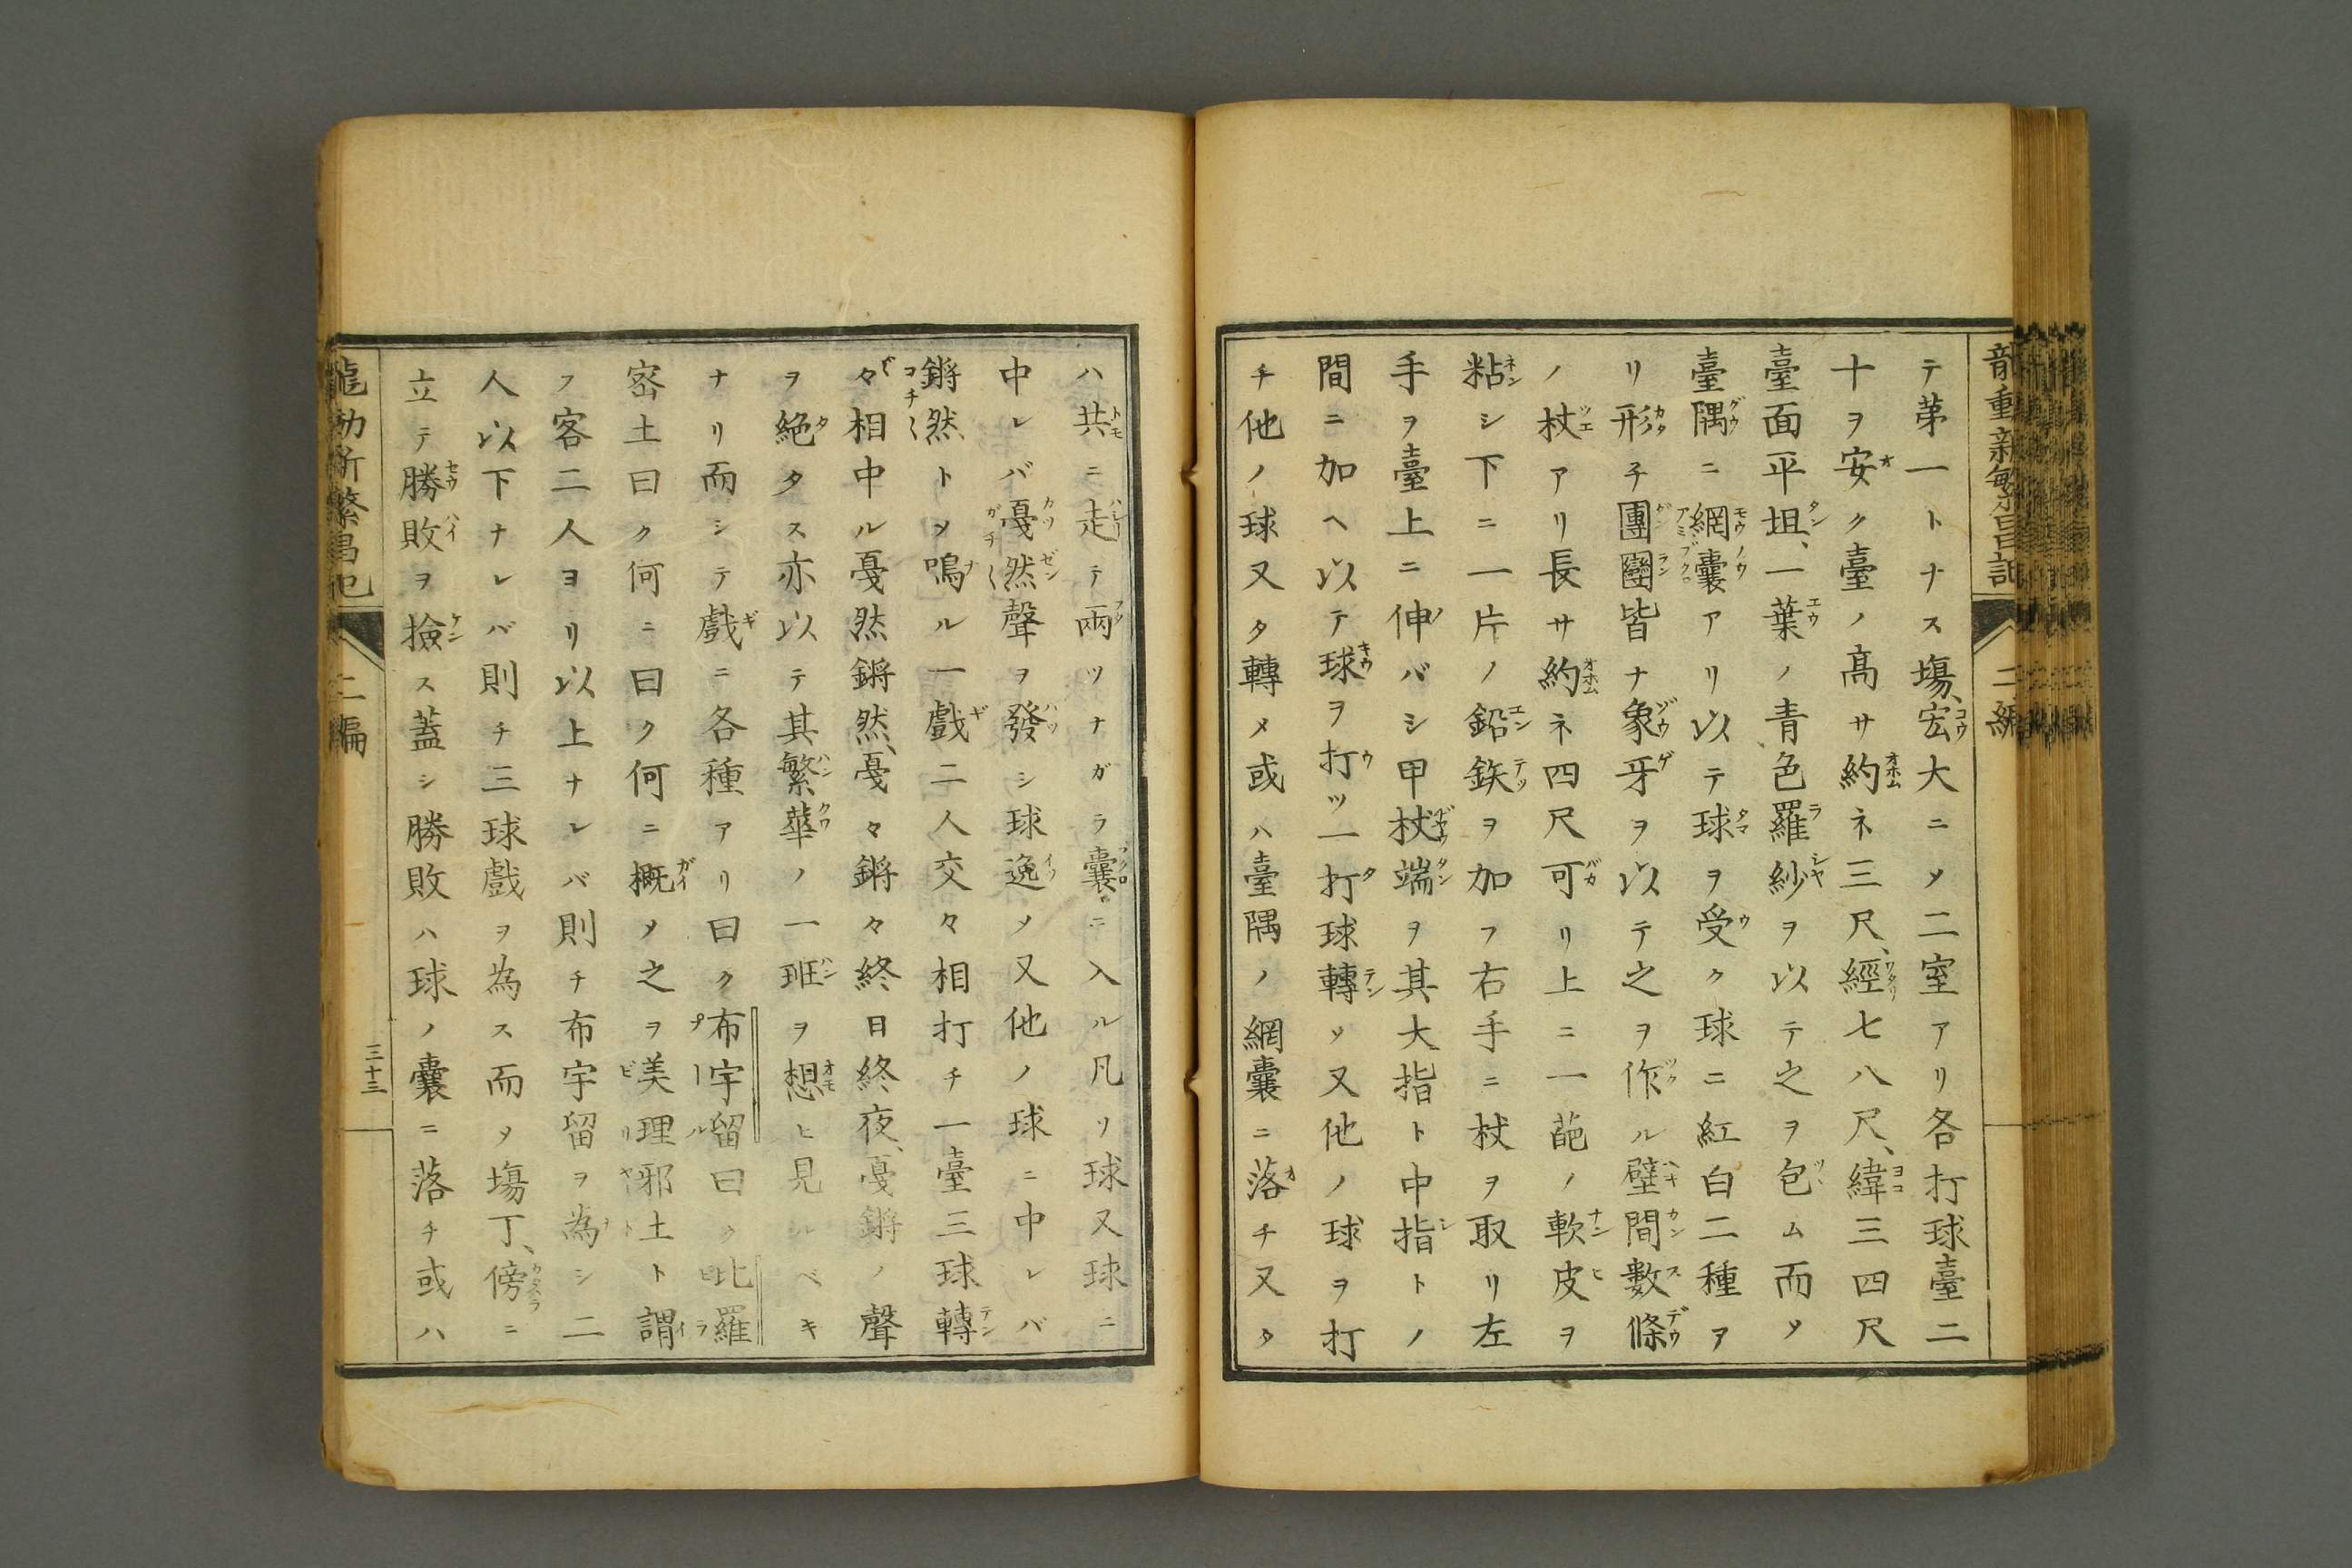 テ苐一トナス塲、宏大ニメ二室アリ各打球臺二
十ヲ安ク臺ノ髙サ約ネ三尺、經七八尺、緯三四尺
臺面平坦、一葉ノ青色羅紗ヲ以テ之ヲ包ム而メ
臺隅ニ網囊アリ以テ球ヲ受ク球ニ紅白二種ア
リ形チ團圞皆ナ象牙ヲ以テ之ヲ作ル壁間數條
ノ杖アリ長サ約ネ四尺可リ上ニ一葩ノ軟皮ヲ
粘シ下ニ一片ノ鉛鉄ヲ加フ右手ニ杖ヲ取リ左
手ヲ臺上ニ伸バシ甲杖端ヲ其大指ト中指トノ
間ニ加ヘ以テ球ヲ打ツ一打球轉ソ又他ノ球ヲ打
チ他ノ球又タ轉メ或ハ臺隅ノ網囊ニ落チ又タ
ハ共ニ走テ兩ツナガラ囊ニ入ル凡ソ球又球ニ
中レバ戞然聲ヲ發シ球逸メ又他ノ球ニ中レバ
鏘然トソ鳴ル一戲二人交々相打チ一臺三球轉
々相中ル戞然鏘然、戞々鏘々終日終夜、戞鏘ノ聲
ヲ絶タス亦以テ其繁華ノ一班ヲ想ヒ見ルベキ
ナリ而シテ戲ニ各種アリ曰ク布宇留曰ク比羅
宻土曰ク何ニ曰ク何ニ概メ之ヲ美理邪土ト謂
フ客二人ヨリ以上ナレバ則チ布宇留ヲ為シ二
人以下ナレバ則チ三球戲ヲ為ス而メ塲丁、傍ニ
立テ勝敗ヲ撿ス蓋シ勝敗ハ球ノ囊ニ落チ或ハ
二編
三十三